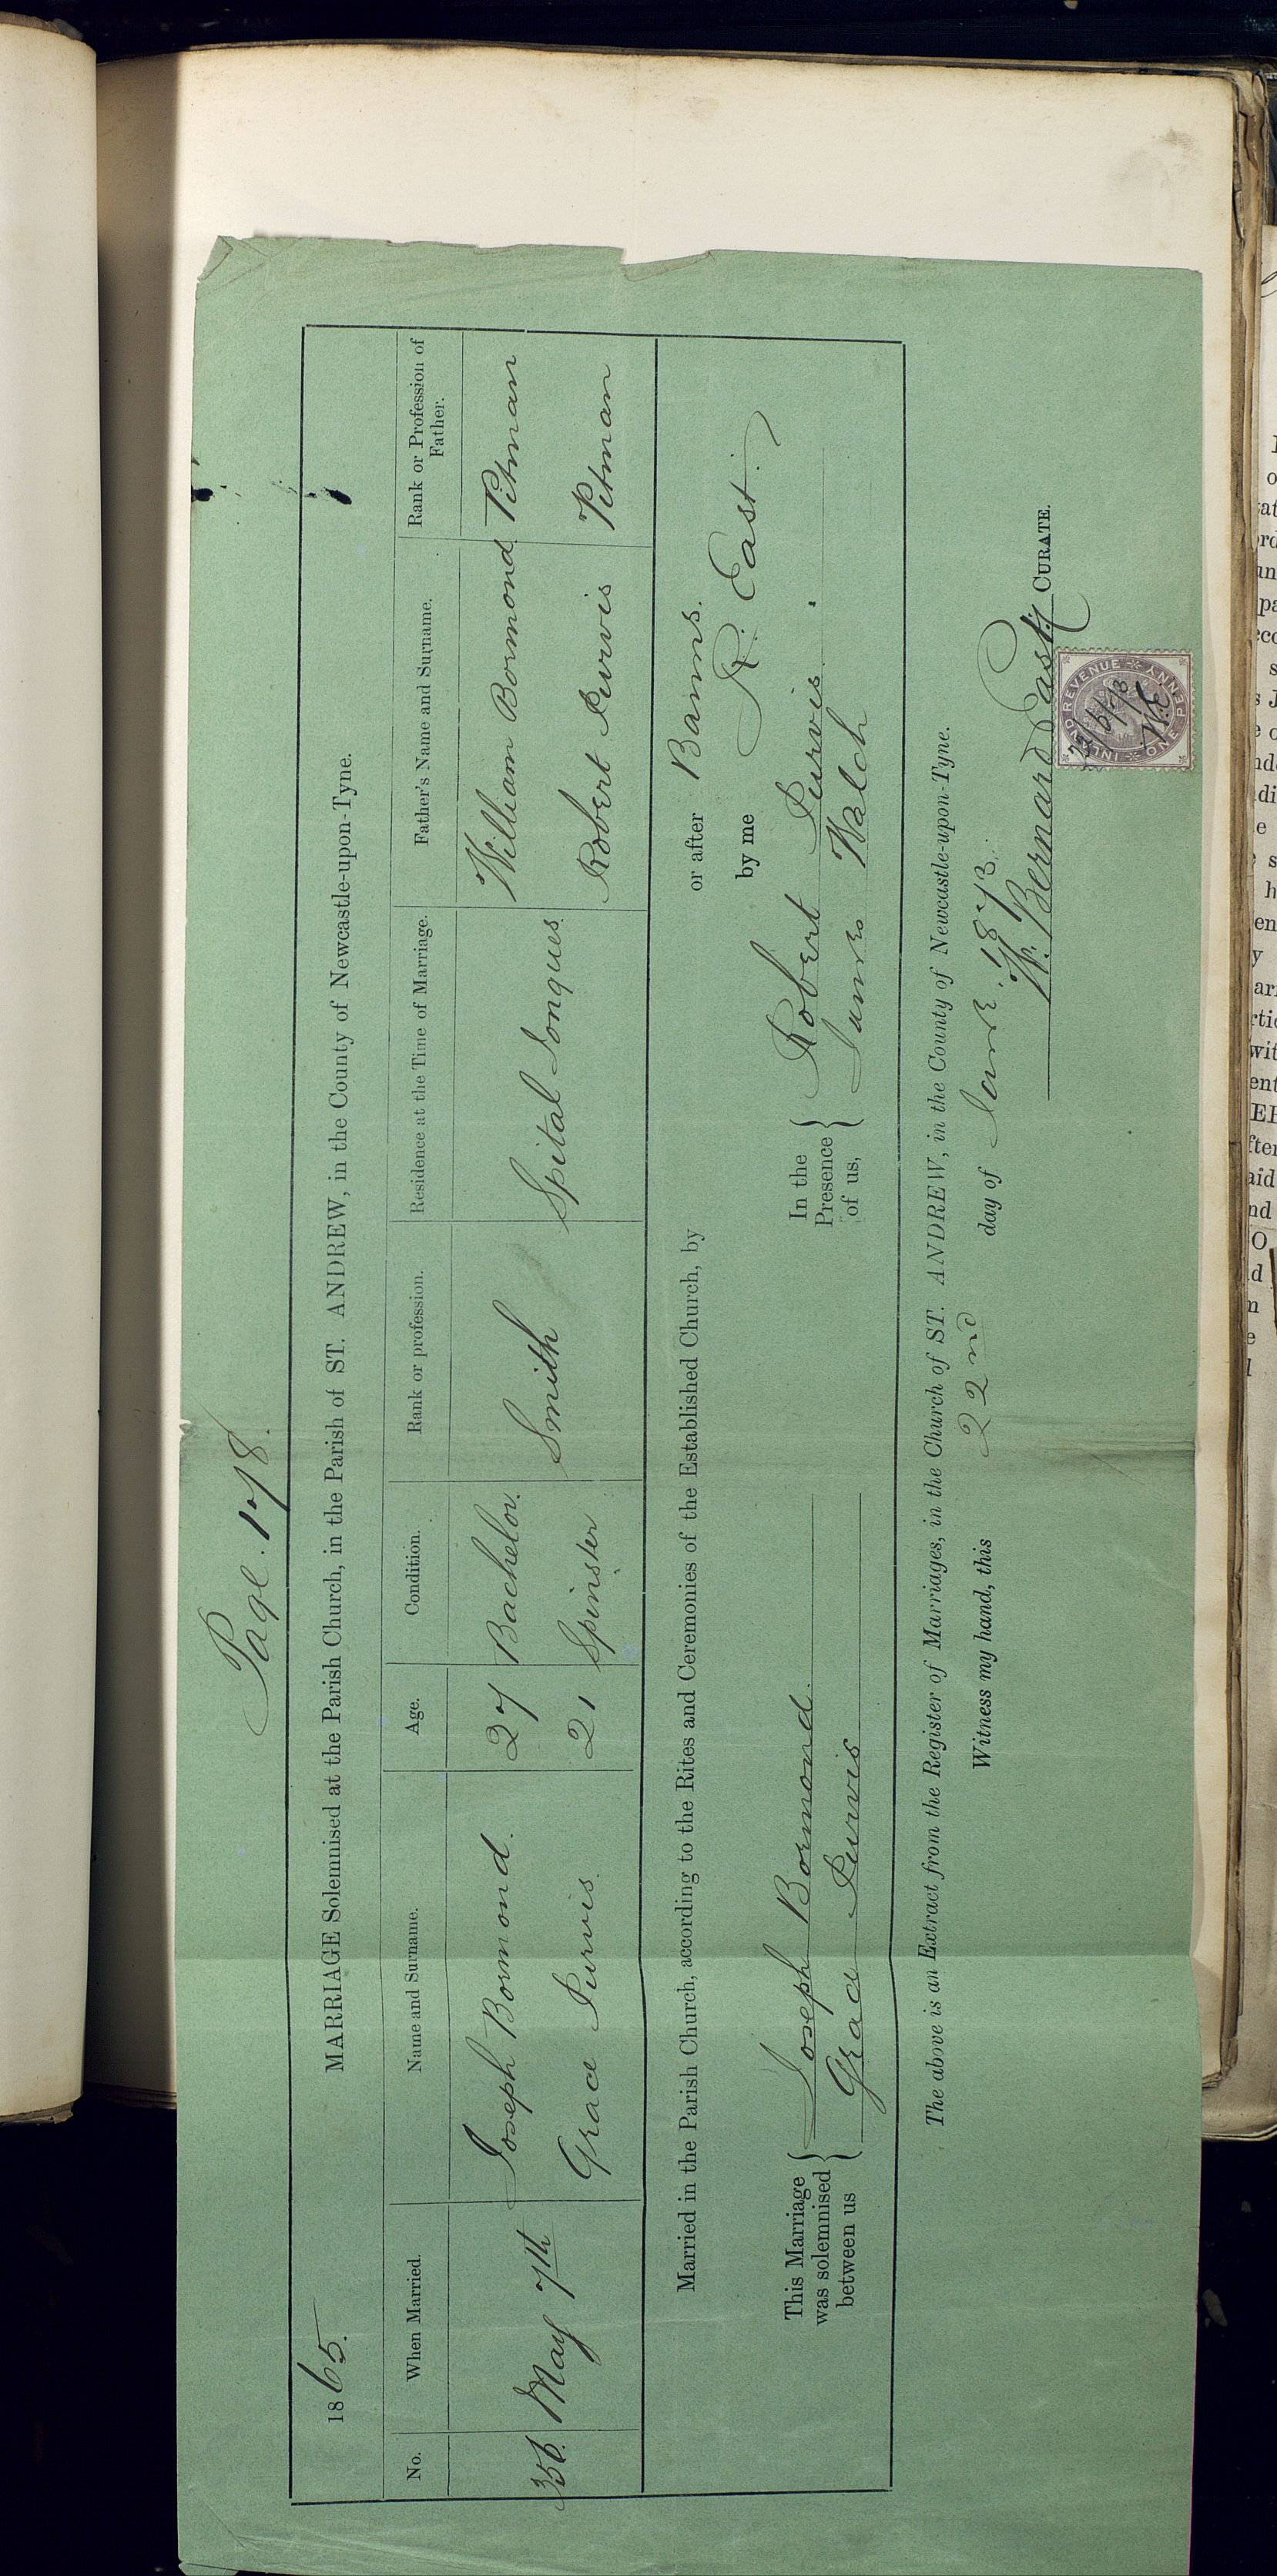 Page 178.
1865. MARRIAGE Solemnised at the Parish Church, in the Parish of ST. ANDREW, in the County of Newcastle-upon-Tyne.
No. When Married. Name and Surname. Age. Condition. Rank or profession. Residence at the Time of Marriage. Father's Name and Surname. Rank or Profession of Father.
Joseph Bormond. 27 Bachelor. William Bormond Pitman
356. May 7th Smith Spital Tongues.
Grace Purvis. 21 Spinster Robert Purvis Pitman
Married in the Parish Church, according to the Rites and Ceremonies of the Established Church, by or after Banns.
by me R. East.
This Marriage was solemnised between us { Joseph Bormond. In the Presence of us, { Robert Purvis.
Grace Purvis James Walch
The above is an Extract from the Register of Marriages, in the Church of ST. ANDREW, in the County of Newcastle-upon-Tyne.
Witness my hand, this 22nd day of June 1873.
W. Bernard East, CURATE.
INLAND REVENUE
ONE PENNY